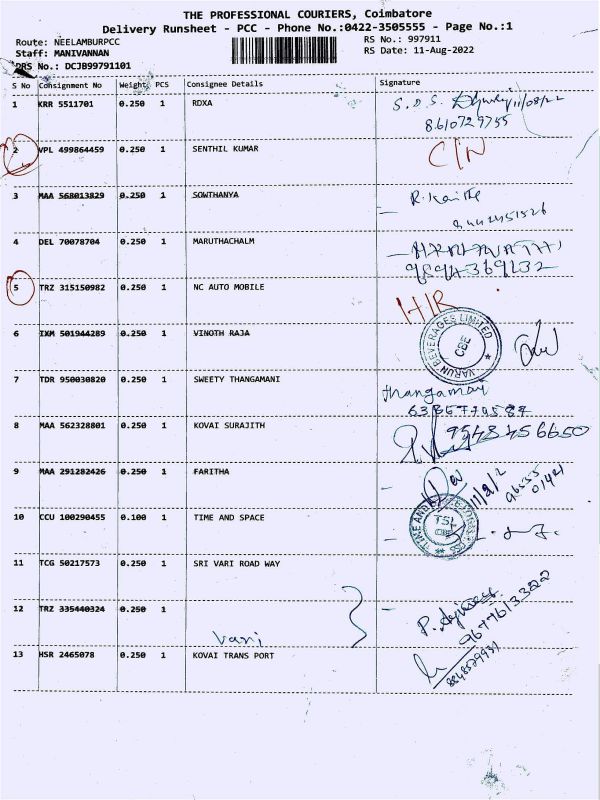 THE PROFESSIONAL COURIERS, Coimbatore
Delivery Runsheet - PCC - Phone No.:0422-3505555 - Page No.:1
Route: NEELAMBURPCC RS No.: 997911
Staff: MANIVANNAN RS Date: 11-Aug-2022
DRS No.: DCJB99791101
S No Consignment No Weight PCS Consignee Details Signature
1 KRR 5511701 0.250 1 RDXA S.D.S. 11/08/22
8610729755
2 VPL 499864459 0.250 1 SENTHIL KUMAR C/N
3 MAA 568013829 0.250 1 SOWTHANYA
4 DEL 70078704 0.250 1 MARUTHACHALM
9894369232
5 TRZ 315150982 0.250 1 NC AUTO MOBILE HIR
6 IXM 501944289 0.250 1 VINOTH RAJA VARUN BEVERAGES LIMITED CBE
7 TDR 950030820 0.250 1 SWEETY THANGAMANI Thangamani
8 MAA 562328801 0.250 1 KOVAI SURAJITH 9548456650
9 MAA 291282426 0.250 1 FARITHA
10 CCU 100290455 0.100 1 TIME AND SPACE TSL CBE
11 TCG 50217573 0.250 1 SRI VARI ROAD WAY
12 TRZ 335440324 0.250 1
9677613322
Vani
13 HSR 2465078 0.250 1 KOVAI TRANS PORT